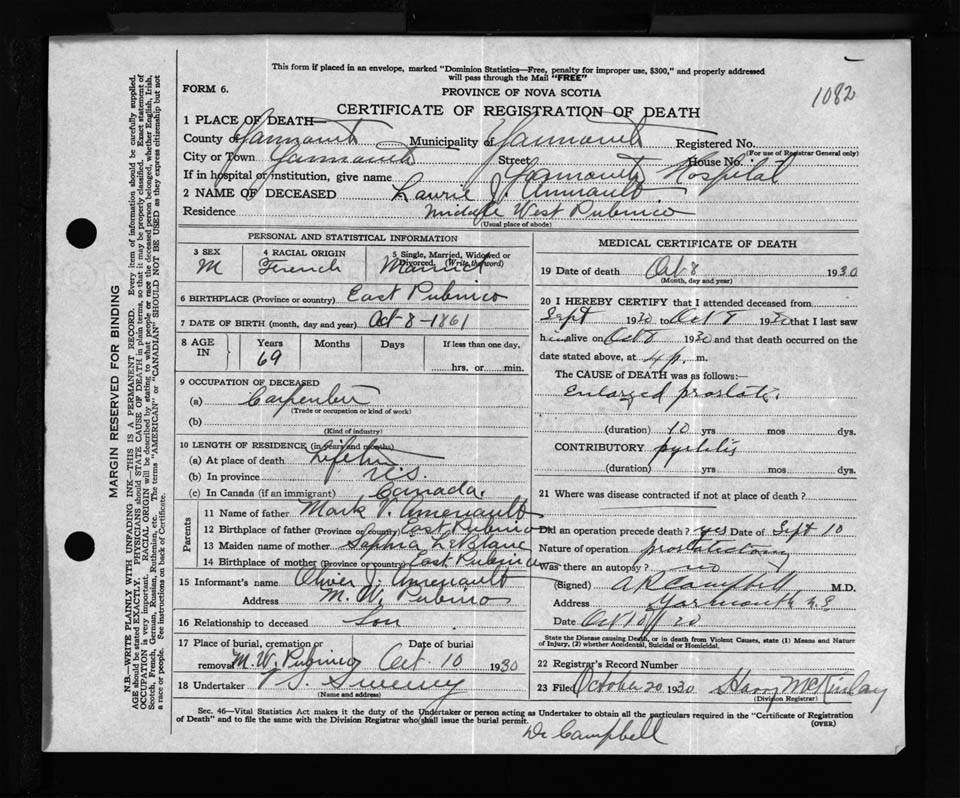 This form if placed in an envelope, marked "Dominion Statistics—Free, penalty for improper use, $300," and properly addressed
will pass through the Mail "FREE"
FORM 6.
PROVINCE OF NOVA SCOTIA
1082
CERTIFICATE OF REGISTRATION OF DEATH
1 PLACE OF DEATH—
County of Yarmouth Municipality of Yarmouth Registered No.
(For use of Registrar General only)
City or Town Yarmouth Street House No.
If in hospital or institution, give name Yarmouth Hospital
2 NAME OF DECEASED Laurie J. Amirault
Residence Middle West Pubnico
(Usual place of abode)
PERSONAL AND STATISTICAL INFORMATION
3 SEX 4 RACIAL ORIGIN 5 Single, Married, Widowed or
Divorced. (Write the word)
M French Married
6 BIRTHPLACE (Province or country) East Pubnico
7 DATE OF BIRTH (month, day and year) Oct-8-1861
8 AGE IN Years Months Days If less than one day,
69
hrs. or min.
9 OCCUPATION OF DECEASED
(a) Carpenter
(Trade or occupation or kind of work)
(b)
(Kind of industry)
10 LENGTH OF RESIDENCE (in years and months)
(a) At place of death Lifetime
(b) In province N.S.
(c) In Canada (if an immigrant) Canada.
Parents
11 Name of father Mark V. Amerault
12 Birthplace of father (Province or country) East Pubnico
13 Maiden name of mother LeBlanc
14 Birthplace of mother (Province or country) East Pubnico
15 Informant's name Oliver J. Amerault
Address M. W. Pubnico
16 Relationship to deceased Son
17 Place of burial, cremation or Date of burial
removal M.W. Pubnico Oct. 10 1930
18 Undertaker Sweeney
(Name and address)
MEDICAL CERTIFICATE OF DEATH
19 Date of death Oct 8 1930
(Month, day and year)
20 I HEREBY CERTIFY that I attended deceased from
Sept 1930 to Oct 8 1930 that I last saw
him alive on Oct 8 1930 and that death occurred on the
date stated above, at 4 p. m.
The CAUSE OF DEATH was as follows:—
Enlarged prostate
(duration) 10 yrs mos dys.
CONTRIBUTORY pyelitis
(duration) yrs mos dys.
21 Where was disease contracted if not at place of death?
Did an operation precede death? yes Date of Sept 10
Nature of operation prostatectomy
Was there an autopsy? no
(Signed) A R Campbell M.D.
Address Yarmouth N.S
Date Oct 10
State the Disease causing Death, or in death from Violent Causes, state (1) Means and Nature
of Injury, (2) whether Accidental, Suicidal or Homicidal.
22 Registrar's Record Number
23 Filed October 20 1930 Harry McKinlay
(Division Registrar)
Sec. 46—Vital Statistics Act makes it the duty of the Undertaker or person acting as Undertaker to obtain all the particulars required in the "Certificate of Registration
of Death" and to file the same with the Division Registrar who shall issue the burial permit.
(OVER)
Dr Campbell
MARGIN RESERVED FOR BINDING
N.B.—WRITE PLAINLY WITH UNFADING INK—THIS IS A PERMANENT RECORD. Every item of information should be carefully supplied.
AGE should be stated EXACTLY. PHYSICIANS should STATE CAUSE OF DEATH in plain terms, so that it may be properly classified. Exact statement of
OCCUPATION is very important. RACIAL ORIGIN will be described by stating to what people or race the deceased person belonged, whether English, Irish,
Scotch, French, German, Russian, Ruthenian, etc. The terms "AMERICAN" or "CANADIAN" SHOULD NOT BE USED as they express citizenship but not
a race or people. See instructions on back of Certificate.